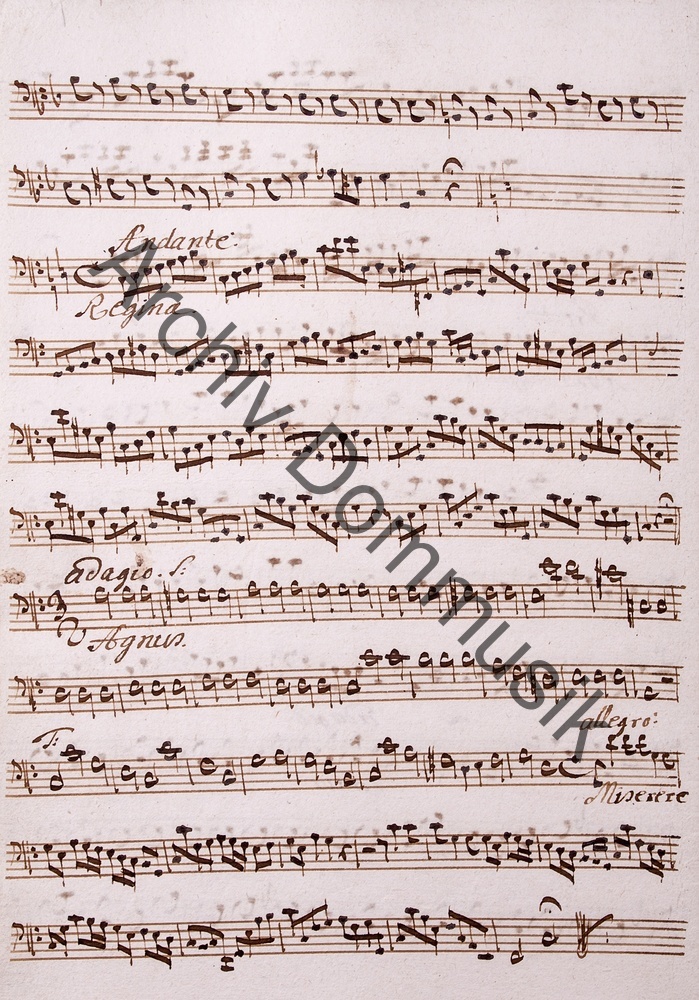 Andante:
Regina
adagio. S:
Agnus.
allegro:
Miserere
Archiv Dommusik